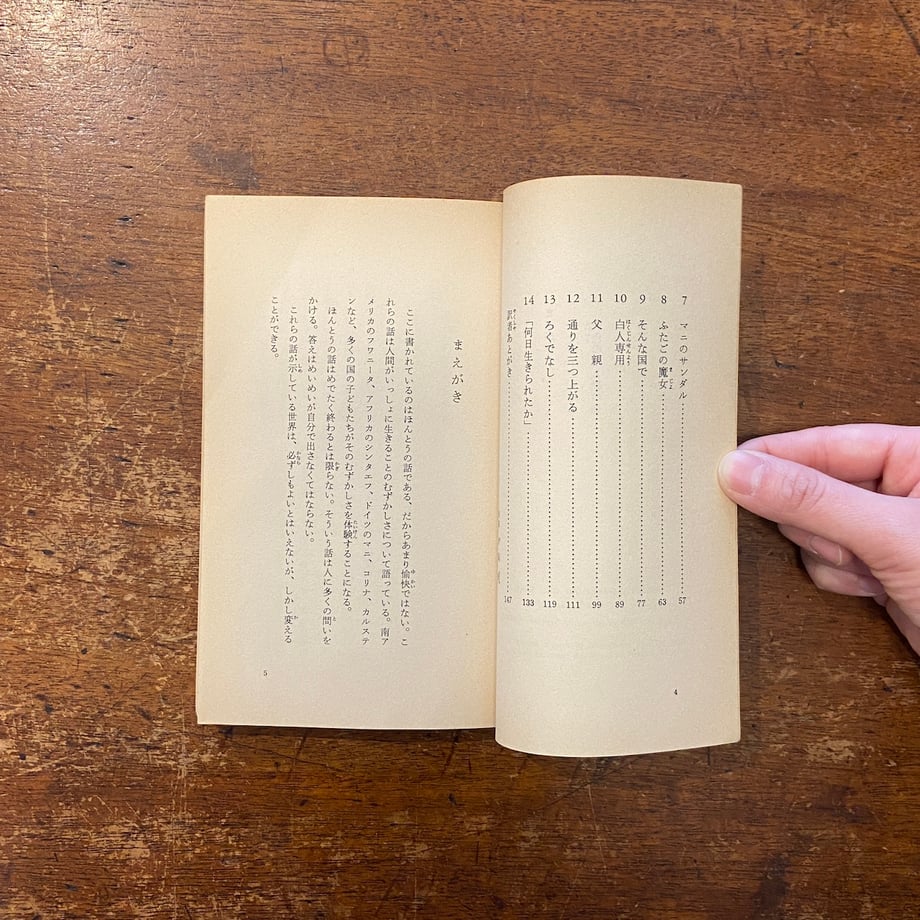 7 マニのサンダル……57
8 ふたごの魔女……63
9 そんな国で……77
10 白人専用……89
11 父 親……99
12 通りを三つ上がる……111
13 ろくでなし……119
14 「何日生きられたか」……133
訳者あとがき……147
4
まえがき
ここに書かれているのはほんとうの話である、だからあまり愉快ではない。こ
れらの話は人間がいっしょに生きることのむずかしさについて語っている。南ア
メリカのフワニータ、アフリカのシンタエフ、ドイツのマニ、コリナ、カルステ
ンなど、多くの国の子どもたちがそのむずかしさを体験することになる。
ほんとうの話はめでたく終わるとは限らない。そういう話は人に多くの問いを
かける。答えはめいめいが自分で出さなくてはならない。
これらの話が示している世界は、必ずしもよいとはいえないが、しかし変える
ことができる。
5